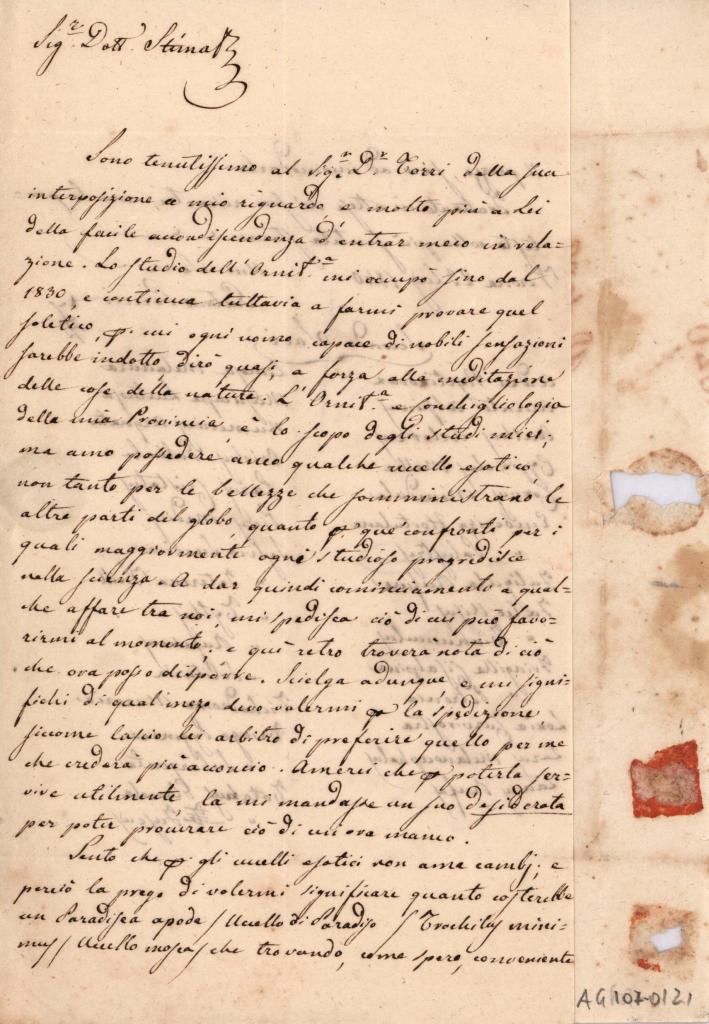 Sig.r Dott. Stimat.
Sono tenutissimo al Sig.r D.r Torri della sua
interposizione a mio riguardo, e molto più a Lei
della facile accondiscendenza d'entrar meco in rela=
zione. Lo studio dell'Ornit.a mi occupò sino dal
1830, e continua tuttavia a farmi provare quel
soletico, p. cui ogni uomo capace di nobili sensazioni
sarebbe indotto, dirò quasi, a forza alla meditazione
delle cose della natura. L'Ornit.a e Conchigliologia
della mia Provincia, è lo scopo degli studi miei;
ma amo possedere anco qualche uccello esotico,
non tanto per le bellezze che somministrano le
altre parti del globo, quanto p. que' confronti per i
quali maggiormente ogni studioso progredisce
nella scienza. A dar quindi cominciamento a qual=
che affare tra noi, mi spedisca ciò di cui può favo=
rirmi al momento; e quì retro troverà nota di ciò
che ora posso disporre. Scielga adunque, e mi signi=
fichi di qual mezo devo valermi p. la spedizione,
siccome lascio lei arbitro di preferire quello per me
che crederà più acconcio. Amerei che p. poterla ser=
vire utilmente, la mi mandasse un suo desiderata
per poter procurare ciò di cui ora manco.
Sento che p. gli uccelli esotici non ama cambj; e
perciò la prego di volermi significare quanto costerebbe
un Paradisea apoda / Uccello di Paradiso / Trochilus mini=
mus / Uccello mosca / che trovando, come spero, conveniente
AG 107-0121